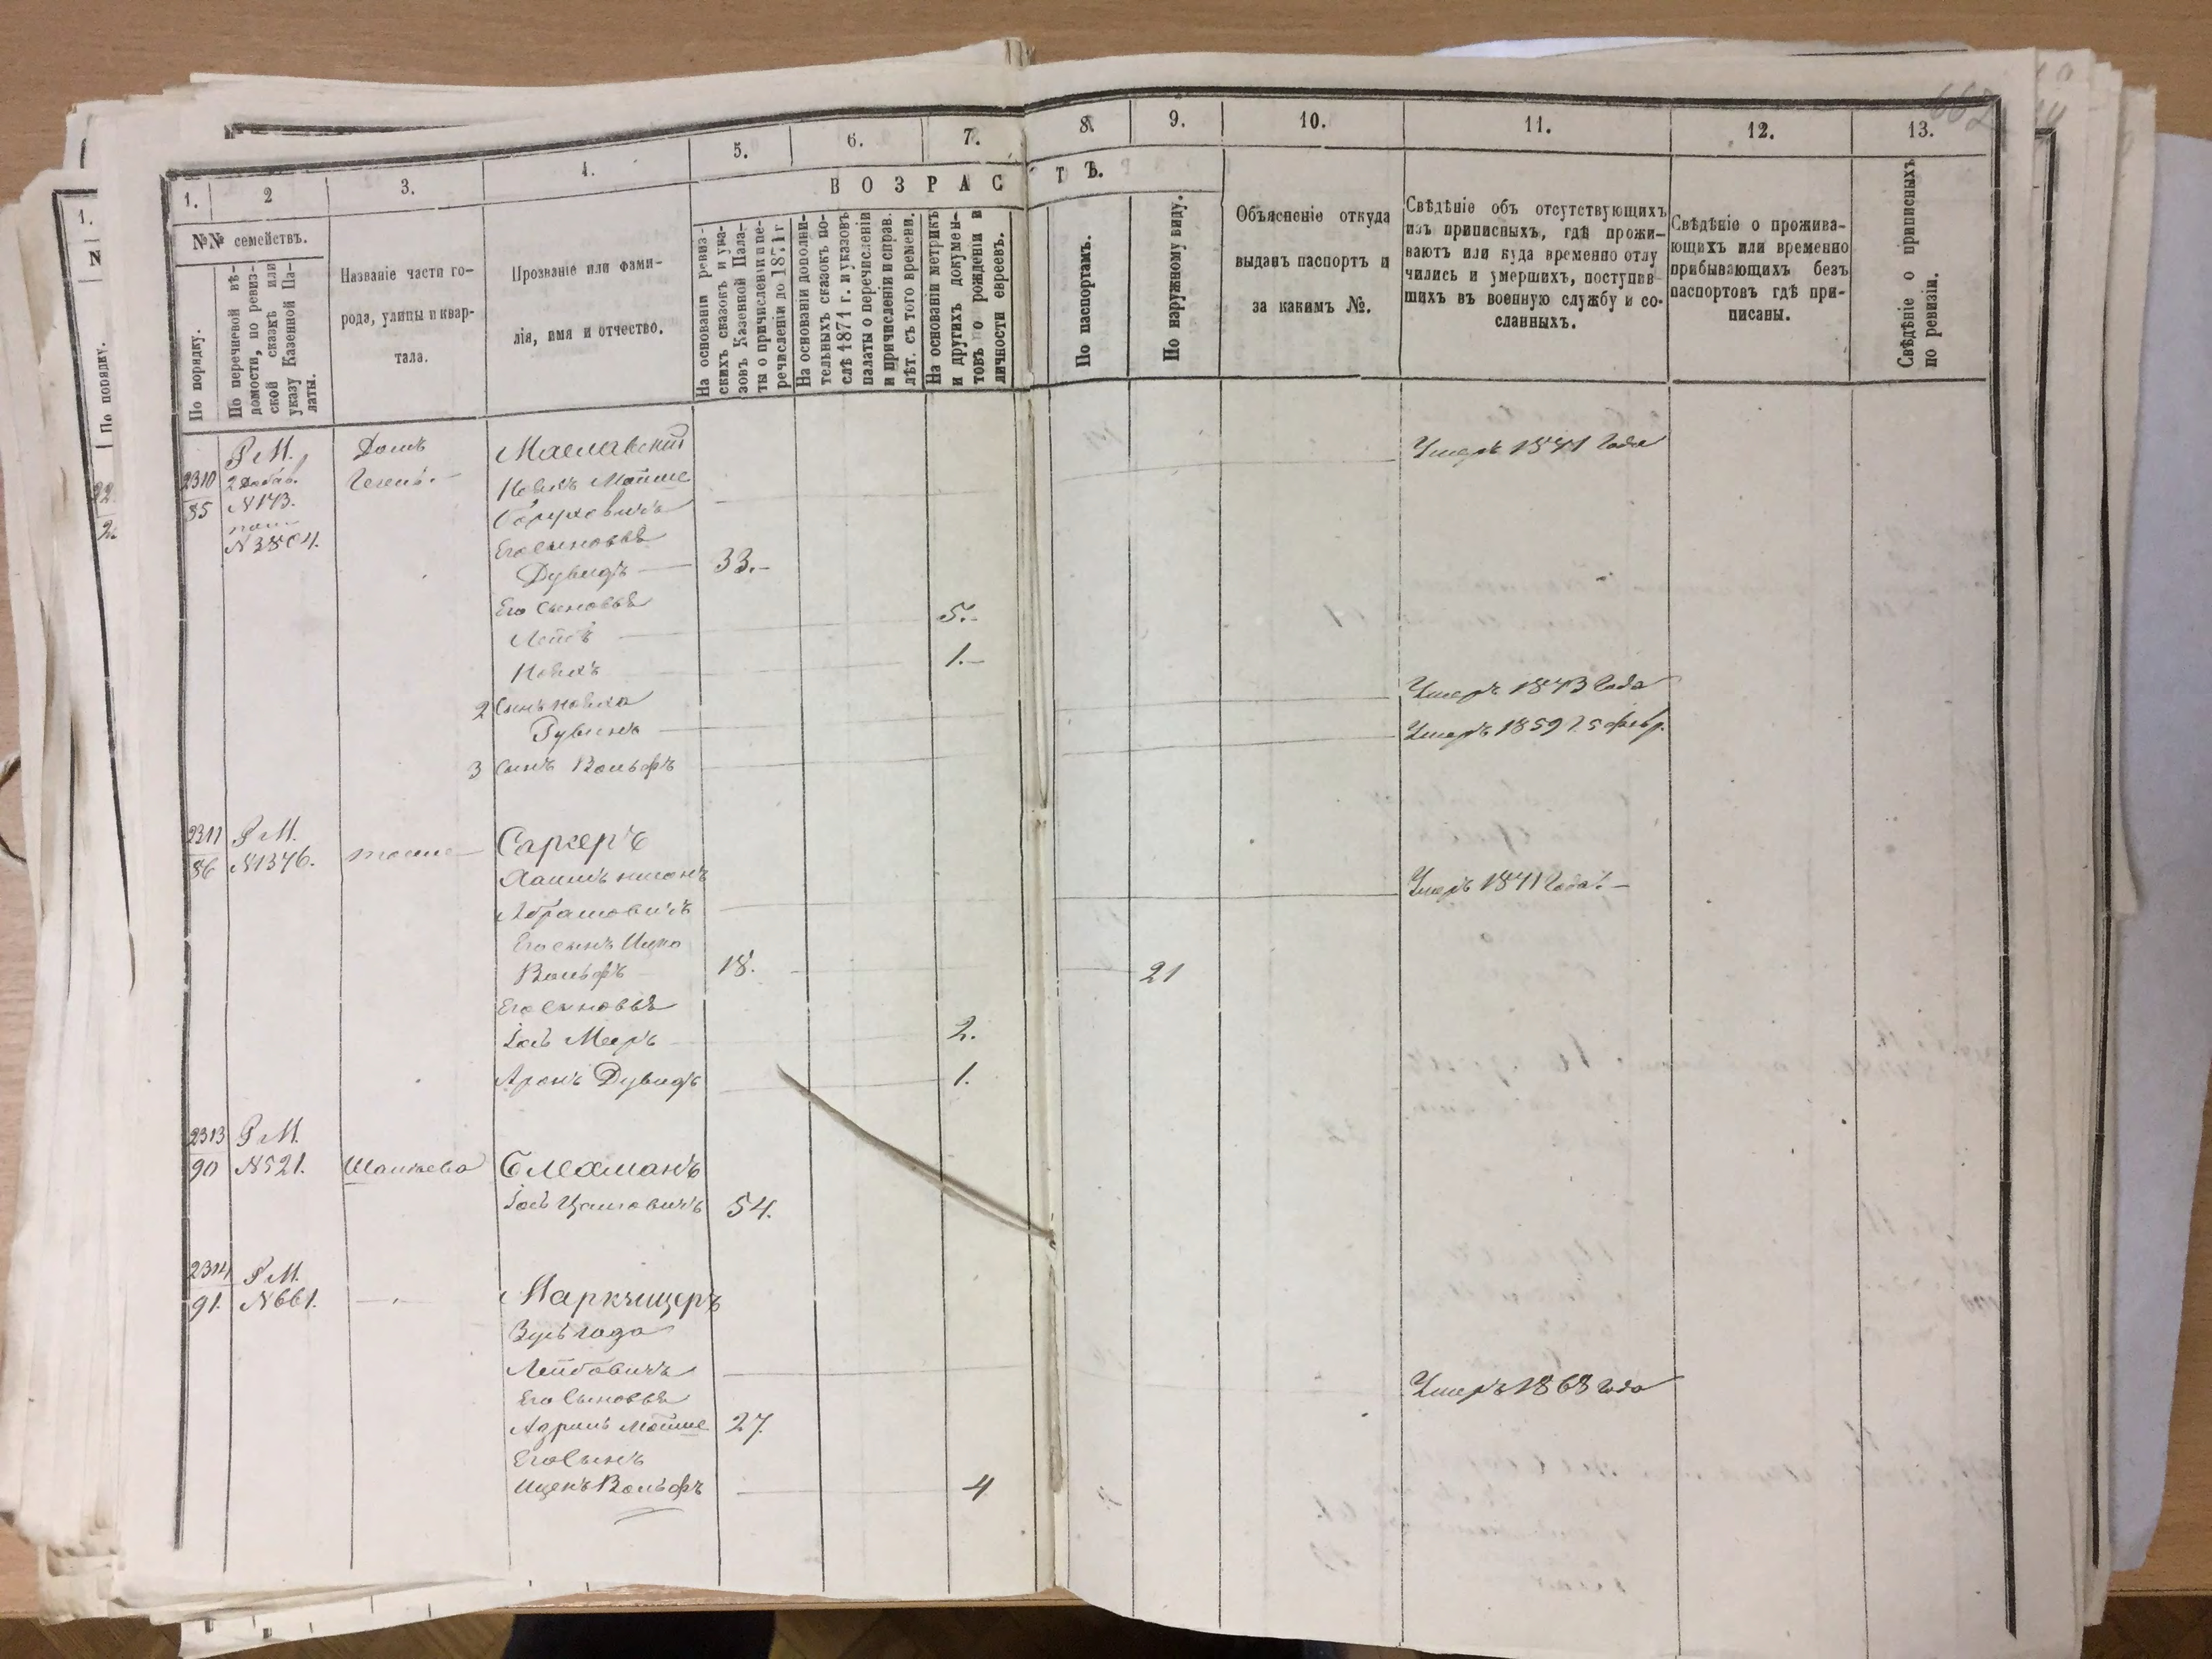 662
1.
2
3.
4.
5.
6.
7.
8.
9.
10.
11.
12.
13.
№№ семействъ.
По порядку.
По перечневой вѣ-
домости, по ревиз-
ской сказкѣ или
указу Казенной Па-
латы.
Названіе части го-
рода, улицы и квар-
тала.
Прозваніе или фами-
лія, имя и отчество.
ВОЗРАСТЪ.
На основаніи ревиз-
скихъ сказокъ и ука-
зовъ Казенной Пала-
ты о причисленіи и пе-
речисленіи до 1871 г
На основаніи дополни-
тельныхъ сказокъ по-
слѣ 1871 г. и указовъ
палаты о перечисленіи
и причисленіи и справ.
лѣт. съ того времени.
На основаніи метрикъ
и другихъ докумен-
товъ о рожденіи и
личности евреевъ.
По паспортамъ.
По наружному виду.
Объясненіе откуда
выданъ паспортъ и
за какимъ №.
Свѣдѣніе объ отсутствующихъ
изъ приписныхъ, гдѣ прожи-
ваютъ или куда временно отлу
чились и умершихъ, поступив-
шихъ въ военную службу и со-
сланныхъ.
Свѣдѣніе о прожива-
ющихъ или временно
прибывающихъ безъ
паспортовъ гдѣ при-
писаны.
Свѣдѣніе о приписныхъ
по ревизіи.
2310
85
Р М.
2 Добав.
№143.
№3804.
Домъ
Маславскій
Новахъ Мойше
Борухович
Умеръ 1841 Года
Его сыновья
Дувидъ 33.-
Его сыновья
Лейбъ 5.-
Новахъ 1.-
2 Сынъ Новаха
Рувинъ
Умеръ 1843 Года
3 Сынъ Вольфъ
Умеръ 1859 25 февр.
2311
86
Р М.
№1346.
тоже
Саркеръ
Хаимъ
Абрамовичъ
Умеръ 1841 Года.-
Его сынъ Ицко
Вольфъ 18. 21
Его сыновья
Іосъ Меръ 2.
Аронъ Дувидъ 1.
2313
90
Р М.
№521.
Блехманъ
Іосъ 54.
2314
91.
Р М.
№661.
Лейбовичъ
Умеръ 1868 года
Его Сыновья
Азриль Мойше 27.
Его Сынъ
Ицекъ Вольфъ 4